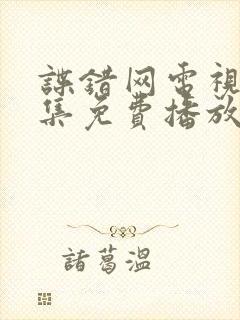 諜錯网电視
集免費播放
諸葛溫